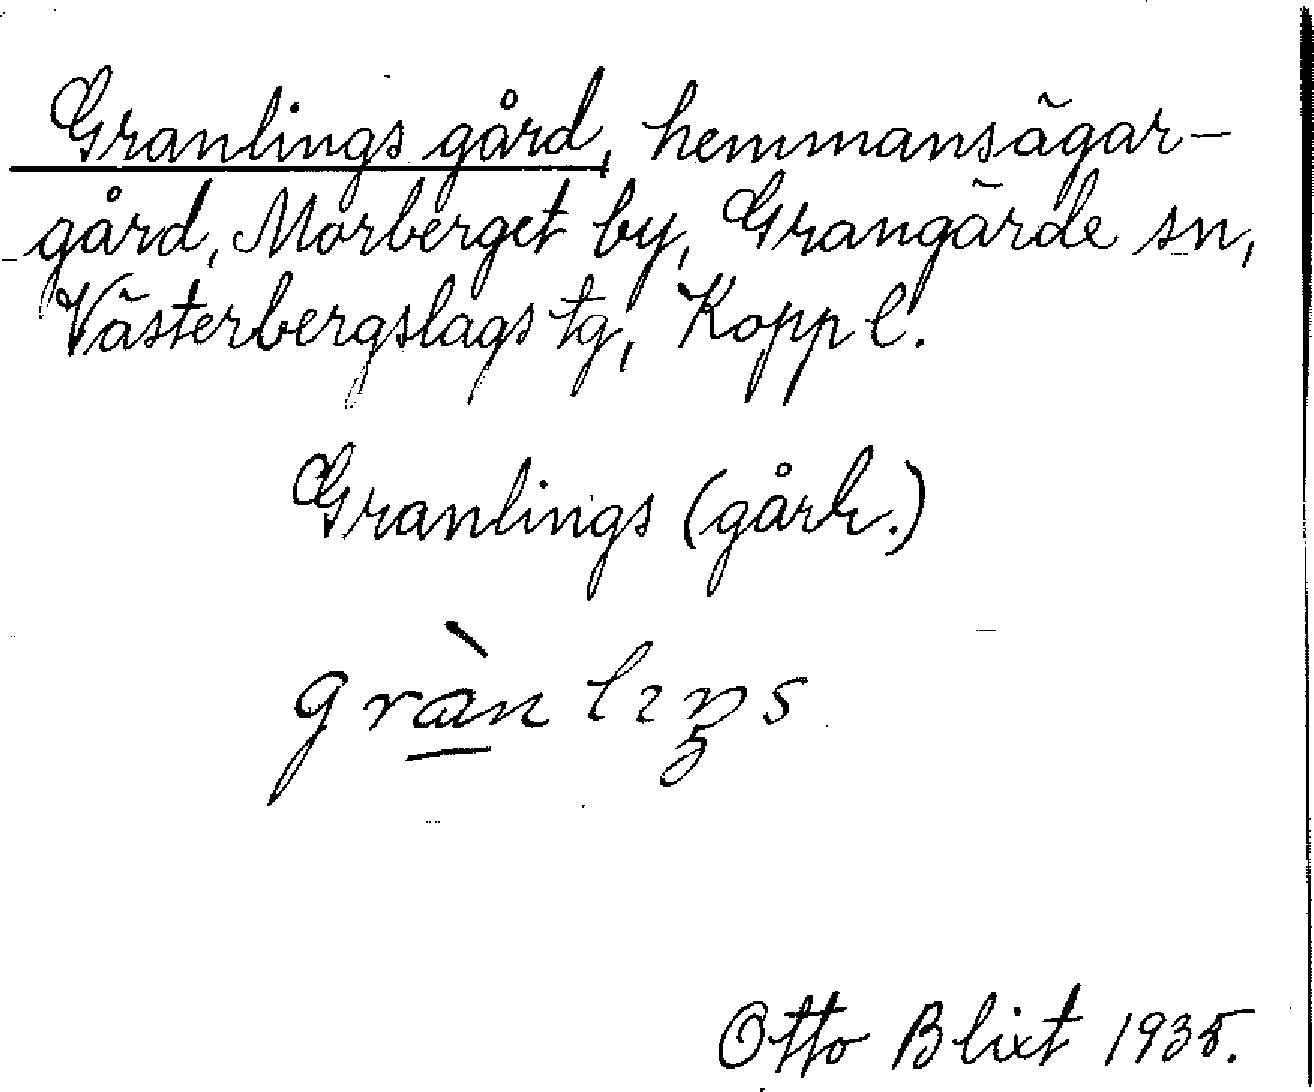 Granlings gård, hemmansägar-
gård, Morberget by, Grangärde sn,
Västerbergslags tg, Kopp l.
Granlings (gårk.)
Otto Blixt 1935.